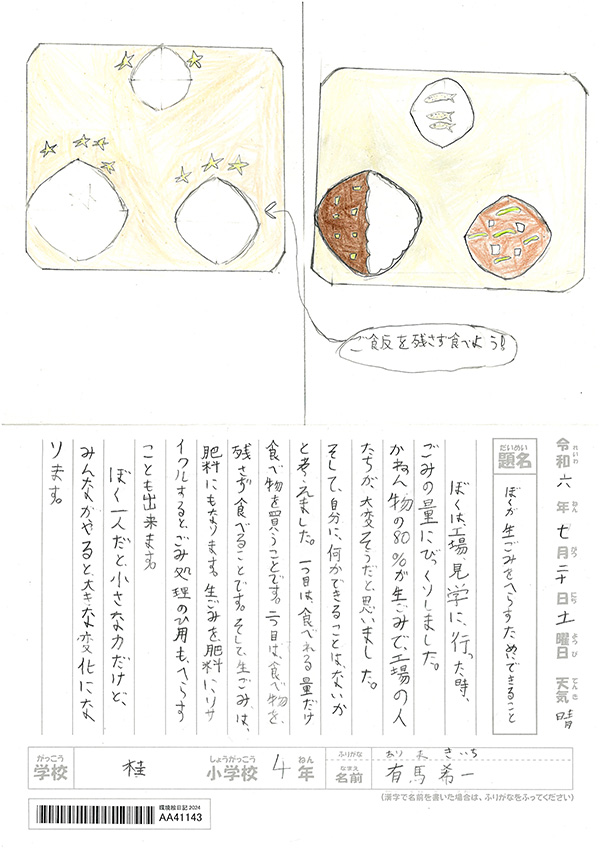 ご飯を残さず食べよう!
令和六年七月二十日土曜日 天気晴
れいわ ねん がつ にち ようび てんき
だいめい
題名
ぼくが生ごみをへらすためにできること
ぼくは、工場見学に、行った時、
ごみの量にびっくりしました。
かねん物の80%が生ごみで、工場の人
たちが大変そうだと思いました。
そして、自分に、何かできることは、ないか
と考えました。一つ目は、食べれる量だけ
食べ物を買うことです。二つ目は、食べ物を、
残さず食べることです。そして、生ごみは、
肥料にもなります。生ごみを肥料にリサ
イクルすると、ごみ処理のひ用も、へらす
ことも出来ます。
ぼく一人だと、小さな力だけど、
みんながやると、大きな変化にな
ります。
がっこう
学校
桂
しょうがっこう
小学校
4
ねん
年
ふりがな
なまえ
名前
有馬希一
(漢字で名前を書いた場合は、ふりがなをふってください)
環境絵日記2024
AA41143